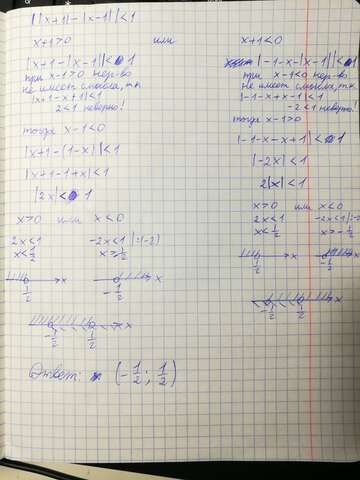 ||x+1|-|x-1||<1
x+1>0 или x+1<0
|x+1-|x-1||<1
при x-1>0 нер-во
не имеет смысла, т.к
|x+1-x+1|<1
2<1 неверно!
тогда x-1<0
|x+1-(1-x)|<1
|x+1-1+x|<1
|2x|<1
x>0 или x<0
2x<1 -2x<1 |:(-2)
x<1/2 x>-1/2
1/2 x -1/2 x
-1/2 1/2 x
|-1-x-|x-1||<1
при x-1<0 нер-во
не имеет смысла, т.к
|-1-x+x-1|<1
-2<1 неверно!
тогда x-1>0
|-1-x-x+1|<1
|-2x|<1
2|x|<1
x>0 или x<0
2x<1 -2x<1
x<1/2 x>-1/2
1/2 x -1/2 x
-1/2 1/2 x
Ответ: (-1/2; 1/2)